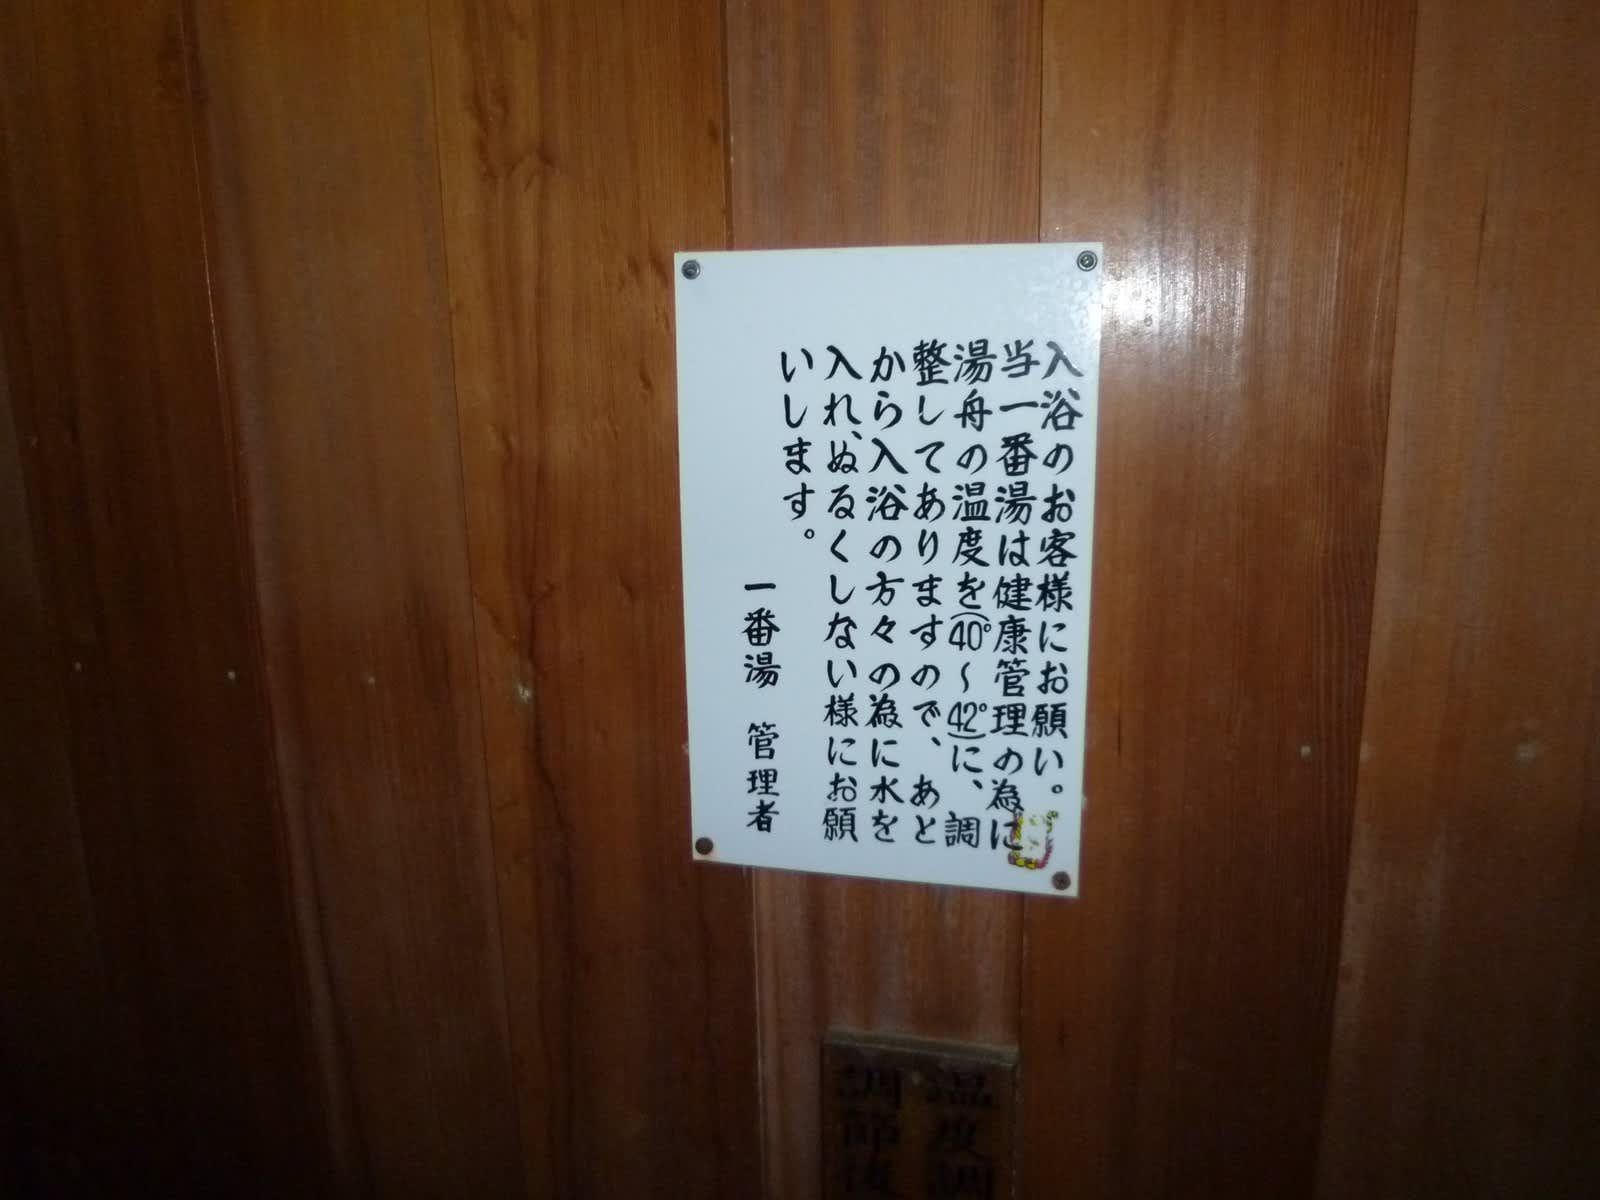 入浴のお客様にお願い。
当一番湯は健康管理の為に
湯舟の温度を(40°〜42°)に、調
整してありますので、あと
から入浴の方々の為に水を
入れ、ぬるくしない様にお願
いします。
一番湯 管理者
温度調
調節後